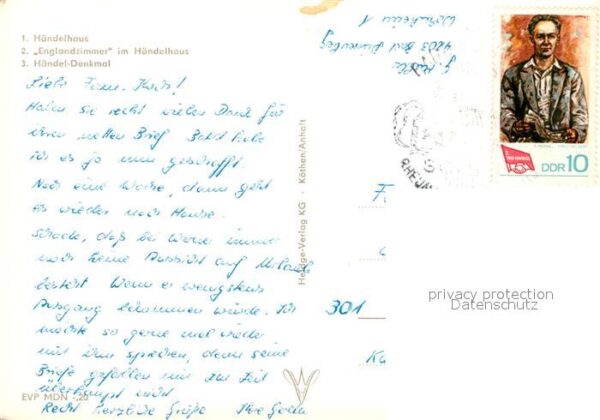 1. Händelhaus
2. „Englandzimmer" im Händelhaus
3. Händel-Denkmal
Haben Sie recht vielen Dank für
Ihren netten Brief. Bald habe
ich es ja nun geschafft.
Noch eine Woche, dann geht
es wieder nach Hause.
Schade, daß bei Werner immer
noch keine Aussicht auf Urlaub
besteht. Wenn er wenigstens
Ausgang bekommen würde. Ich
möchte so gerne mal wieder
mit ihm sprechen, denn seine
Briefe gefallen mir zur Zeit
überhaupt nicht
Recht herzliche Grüße Ihre
EVP MDN -,20
Heldge-Verlag KG Köthen/Anhalt
4203 Bad
DDR 10
301
privacy protection
Datenschutz